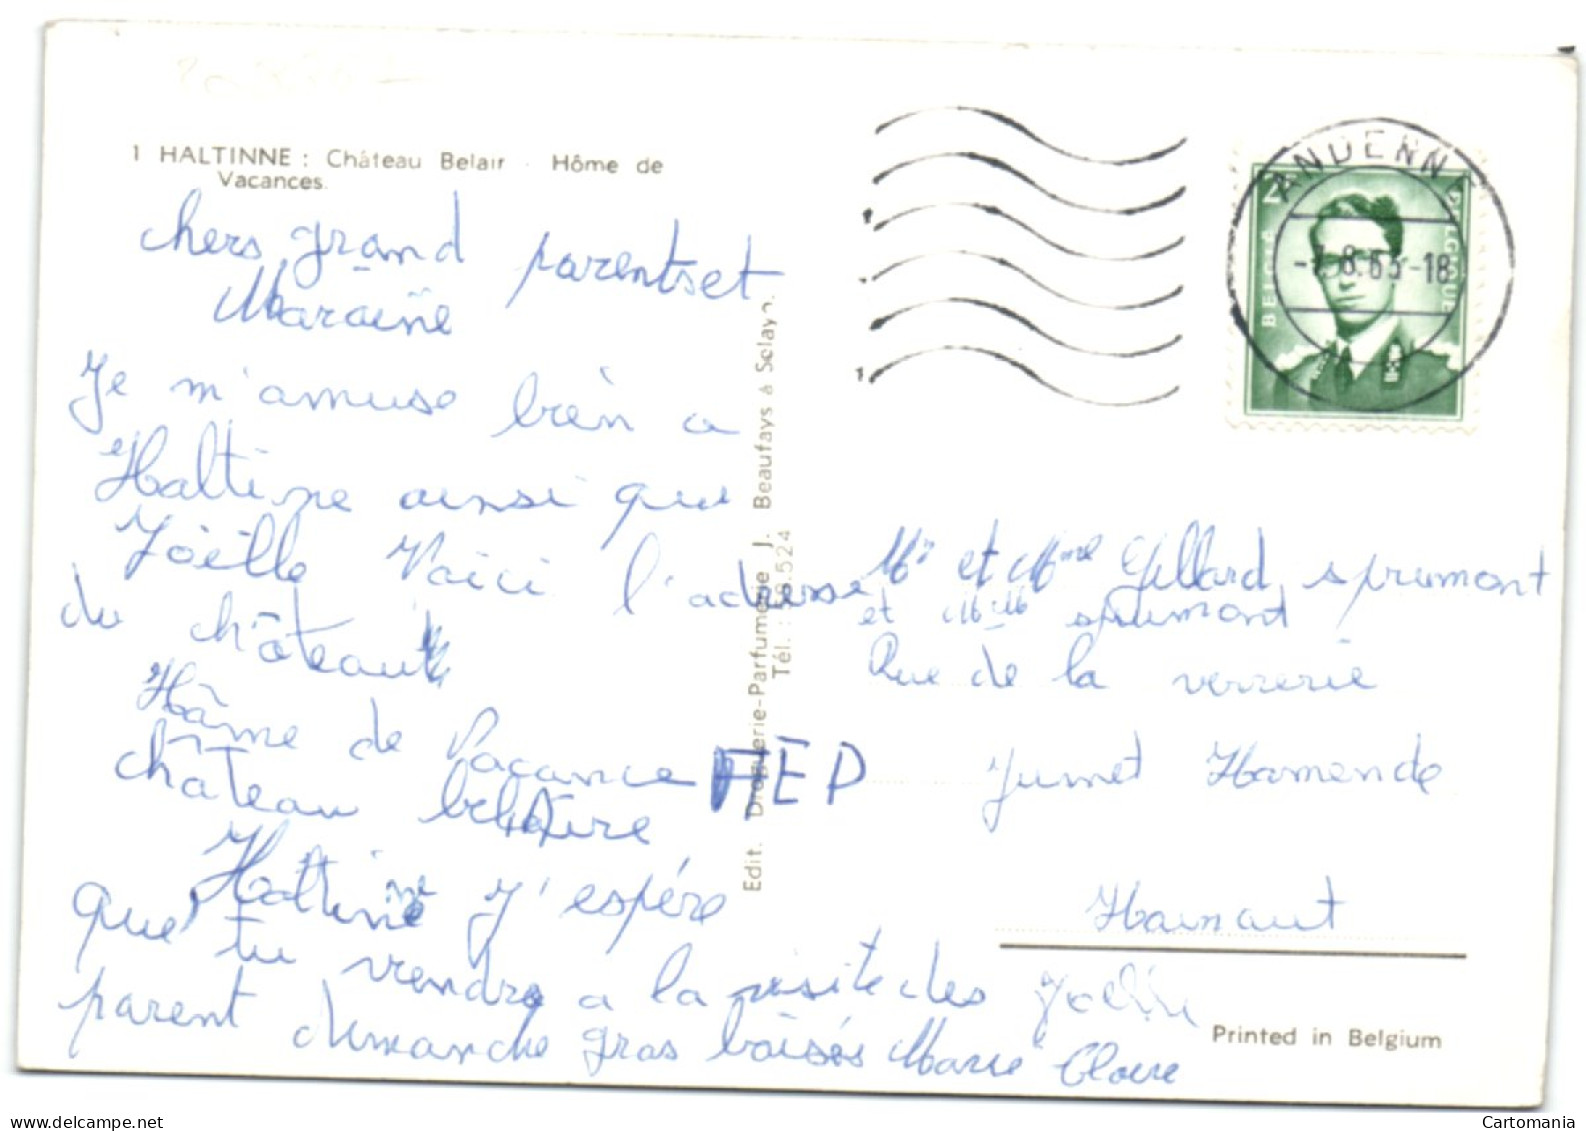 1 HALTINNE : Château Belair - Hôme de
Vacances.
chers grand parents et
Maraine
Je m'amuse bien a
Haltine ainsi que
Joëlle Voici l'adresse
du château
Hâme de Vacance
château belAire
Haltine J'espére
que tu viendra a la visite des
parent dimanche gras baisés Marie Claire
Joëlle
FEP
Edit. Droguerie-Parfumerie J. Beaufays à Sclayn.
Tél. : 58.524
BELGIË
BELGIQUE
2F
ANDENNE
-7.8.65-18
Mr et Mme Gillard sprumont
et sprumont
Rue de la verrerie
Jumet Hamende
Hainaut
Printed in Belgium
Cartomania